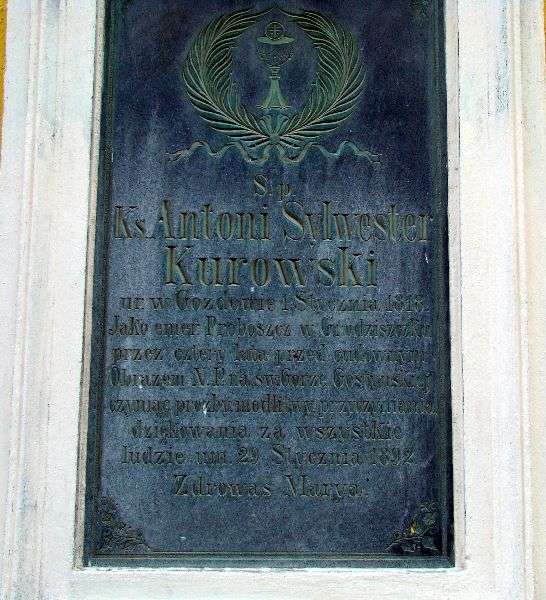 Ś. p.
Ks. Antoni Sylwester
Kurowski
ur w Gozdowie 1. Stycznia
Jako emer Proboszcz w Grodziszczku
przez cztery lata przed cudownym
Obrazem N. P. na św. Górze Gostyńskiej
czyniąc prozby, modlitwy
dziękowania za wszystkie
ludzie um 29 Stycznia 1892
Zdrowaś Marya.